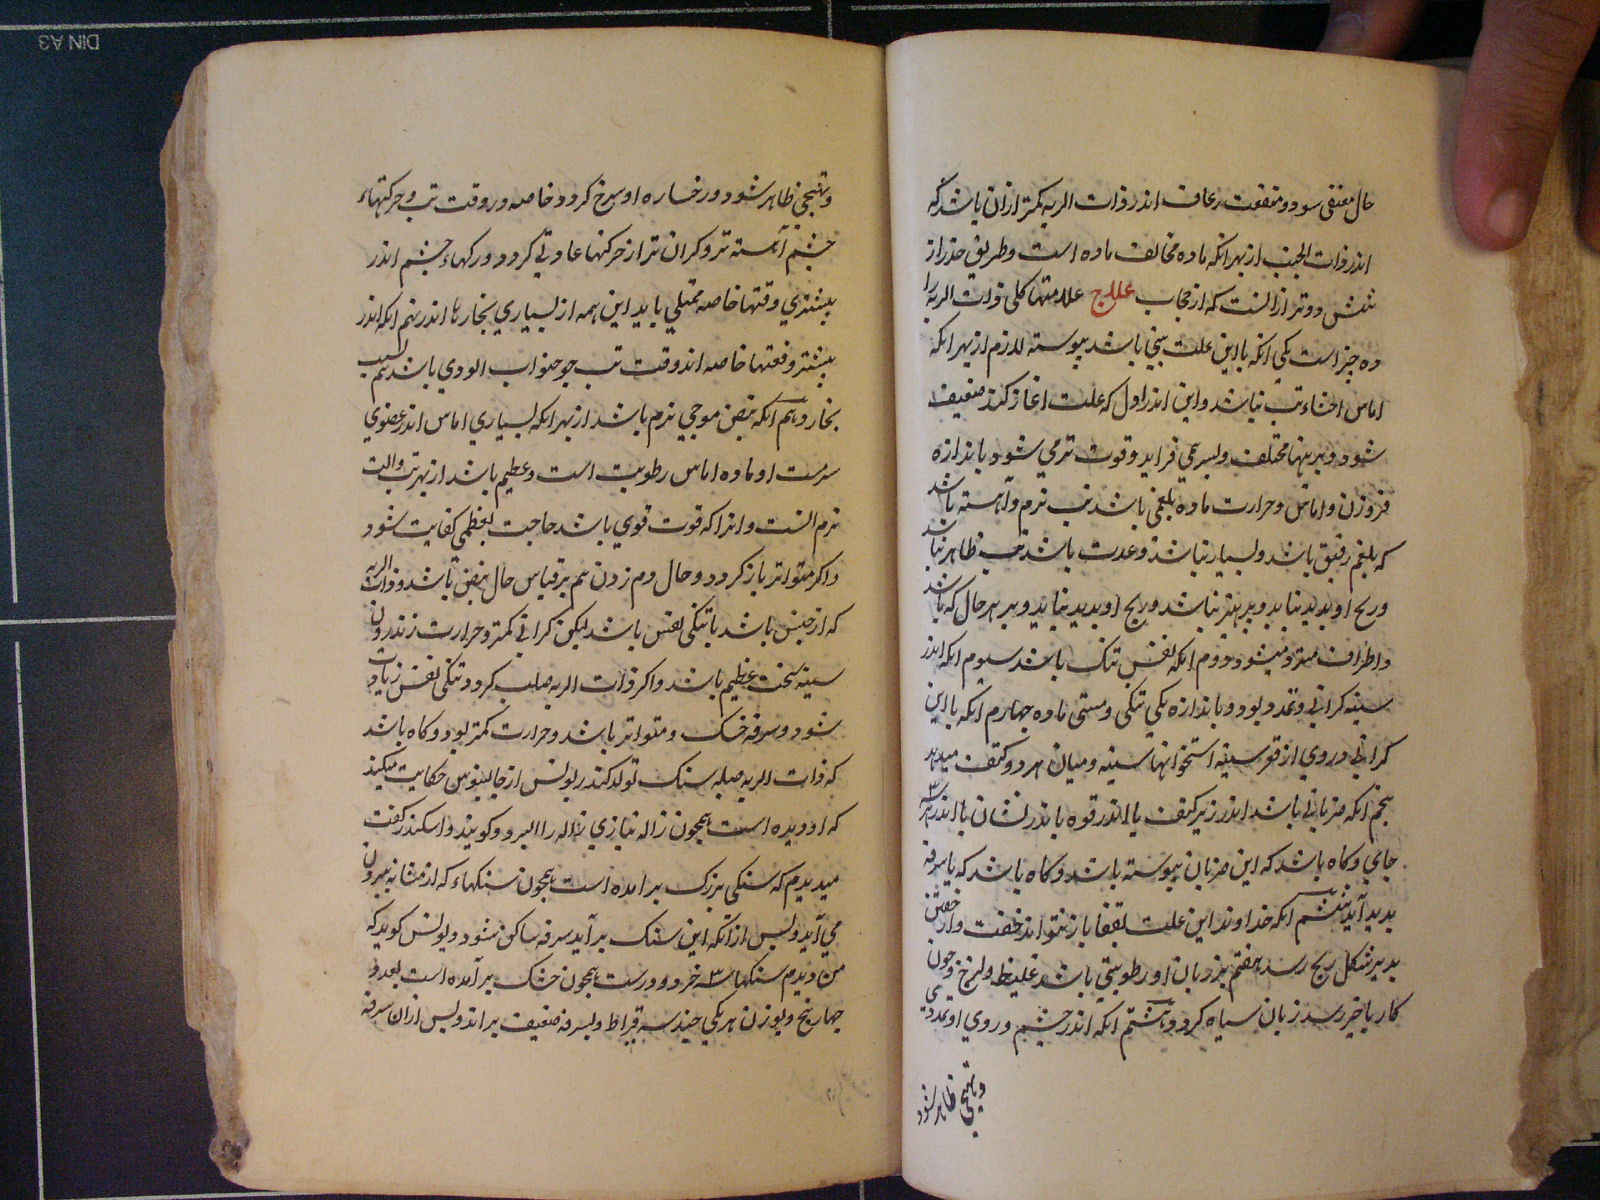 حال مغنفی سود و منفعت رعاف اندر ذات الریه کمتر ازان باشد که
اندر ذات الجنب از بهر انکه ماده مخالف ماده است و طریق حذر از
شش دو تر از انست که از حجاب علاج علامتها کلی ذات الریه را
ده چیز است یکی انکه با این علت تبی باشد پیوسته لازم از بهر انکه
اماس احشاء تب نباشد و این اندر اول که علت اغاز کند ضعیف
شود و بر بنها مختلف و لسرعی فراید و قوت تر می شود باندازه
فزوزن و اماس و حرارت ماده بلغمی باشد تب نرم و آهسته باشد
که بلغم رقیق باشد و لسیار نباشد و عدت باشد تب ظاهر نباشد
و ریح او بدید نیاید و بر بهتر نباشد و ریح او بدید نیاید و بر هر حال که باشد
و اطراف میشود دوم انکه نفس تنک باشد سیوم انکه اندر
سینه کرانی و تمدد بود و باندازه یکی تنکی و مستی ماده چهارم انکه با این
کرانی دردی از قعر سینه استخوانها سینه و میان هر دو کتف میدید
پنجم انکه ضربانی باشد اندر زیر کتف یا اندر قوه یا بذر لشان یا اندر هر سه
جای و کاه باشد که این ضربان پیوسته باشد و کاه باشد که یا سرفه
بدید آید ششم انکه خداوند این علت بقفا باز نتواند خفت و از خفتن
بدیر شکل ریح رسد هفتم بر زبان او رطوبتی باشد غلیظ و لزج و چون
کار باخیر رسد زبان سیاه کردد هشتم انکه اندر چشم و روی او تمددی
و تهیجی ظاهر شود
و تهیجی ظاهر شود و رخساره او سرخ کردد خاصه در وقت تب و حرکتهاء
چشم آهسته تر و کران تر از حرکتها عادتی کردد و رکهاء چشم اندر
بیشتری وقتها خاصه ممتلی باید این همه از لسیاری بخارها اندر نهم انکه اندر
بیشتر وقعتها خاصه اند وقت تب جو خواب الودی باشد هم السبب
بخار دهم انکه نبض موجی نرم باشد از بهر انکه لسیاری اماس اندر عضوی
سرست او ماده اماس رطوبت است و عظیم باشد از بهر تب و الت
نرم الست و انرا که قوت قوی باشد حاجت لعظمی کفایت شود
و اکر متواتر باز کردد و حال دم زدن هم بر قیاس حال نبض باشد و ذات الریه
که از جنس باشد با تنکی نفس باشد لیکن کرانی کمتر و حرارت زندرون
سینه سخت عظیم باشد و اکر ذات الریه صلب کردد تنکی نفس زیادت
شود و سرفه خشک و متواتر باشد و حرارت کمتر بود و کاه باشد
که ذات الریه صلبه سنک تولد کند ر بولس از جالینوس حکایت میکند
که او دیده است همچون ژاله نیازی ژاله را البرد و کویند و اسکندر کفت
میدیدم که سنکی بزرک بر امده است همچون سنکهاء که از مثانه بیرون
می آید و لس از انکه این سنک بر آید سرفه ساکن شود و بولس کوید که
من دیدم سنکها سه خرد و درست همچون خشک بر آمده است بعدد
چهار پنج و بوزن هر یکی چند سه قیراط و لسرفه ضعیف بر اند و لس ازان سرفه